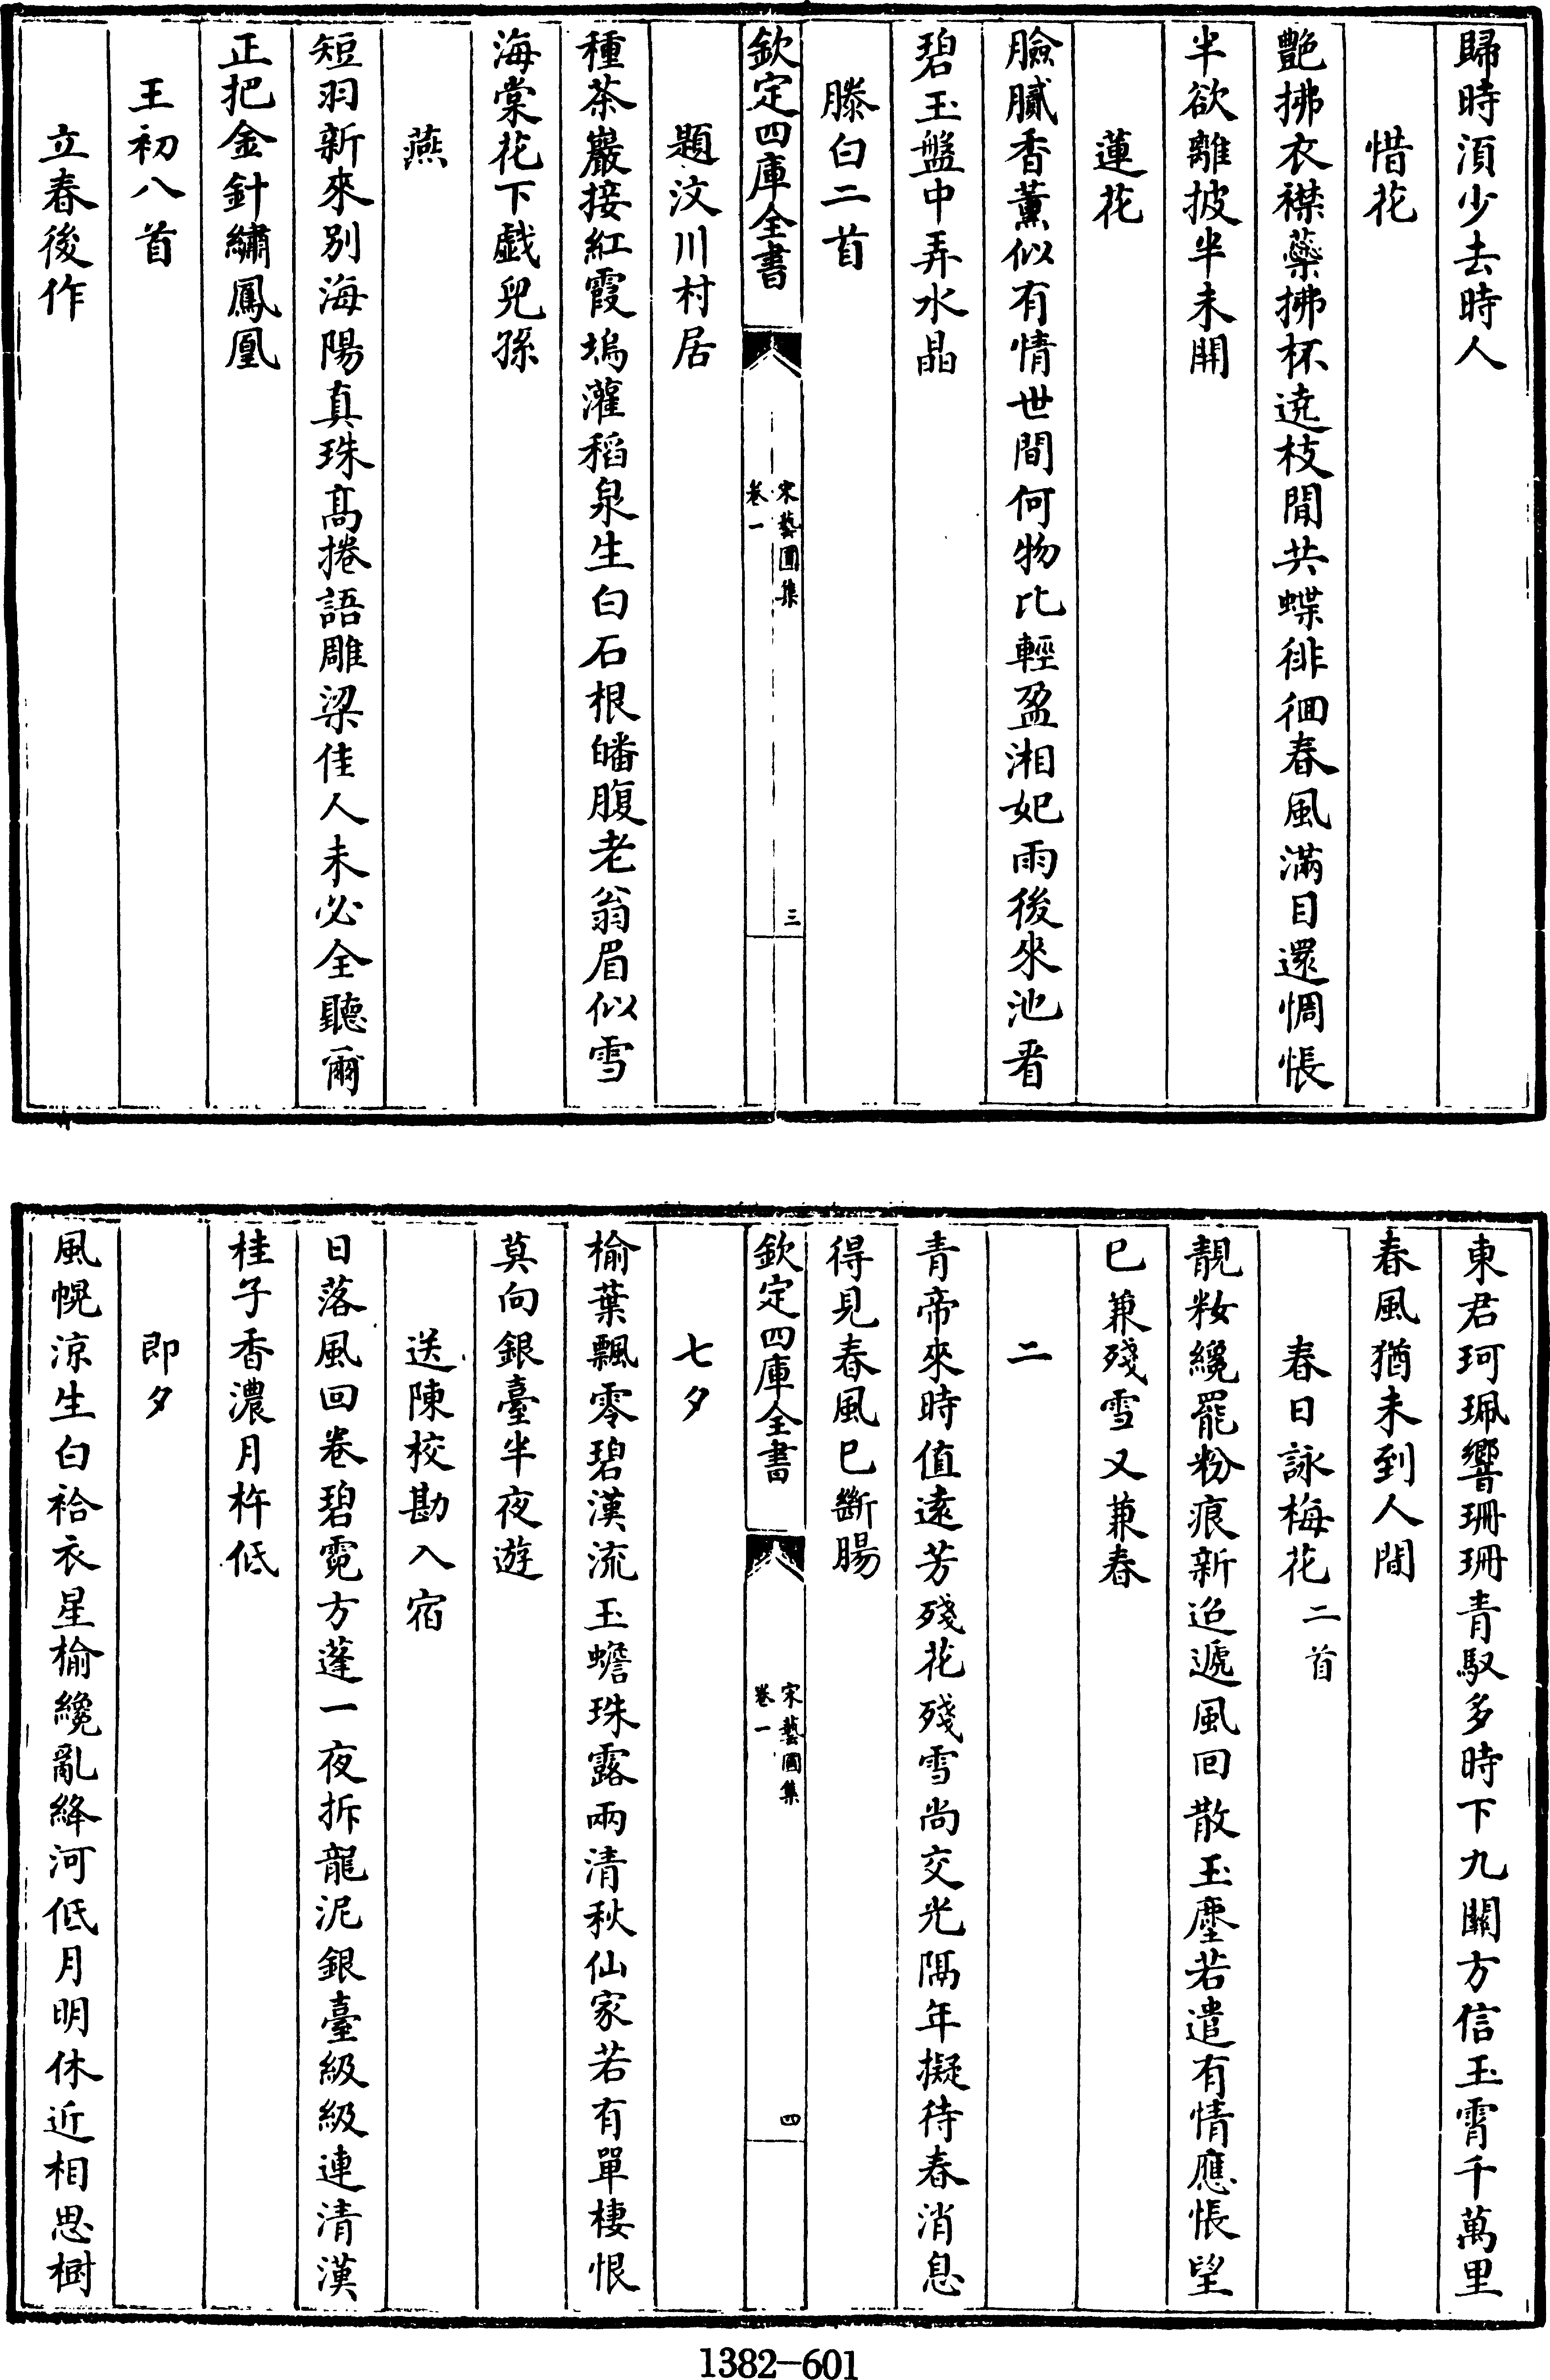 歸時湏少去時人
惜花
艶拂衣襟蘂拂杯遶枝閒共蝶徘徊春風滿目還惆悵
半欲離披半未開
蓮花
臉膩香薰似有情世間何物比輕盈湘妃雨後來池看
碧玉盤中弄水晶
滕白二首
欽定四庫全書
宋藝圃集
卷一
三
題汶川村居
種茶巖接紅霞塢灌稻泉生白石根皤腹老翁眉似雪
海棠花下戲兒孫
燕
短羽新來別海陽真珠髙捲語雕梁佳人未必全聽爾
正把金針繡鳳凰
王初八首
立春後作
東君珂珮響珊珊青馭多時下九關方信玉霄千萬里
春風猶未到人間
春日詠梅花二首
靚粧纔罷粉痕新迨遞風回散玉塵若遣有情應悵望
已兼殘雪又兼春
二
青帝來時值遠芳殘花殘雪尚交光隔年擬待春消息
得見春風已斷腸
欽定四庫全書
宋藝圃集
卷一
四
七夕
榆葉飄零碧漢流玉蟾珠露兩清秋仙家若有單棲恨
莫向銀臺半夜遊
送陳校勘入宿
日落風回卷碧霓方蓬一夜拆龍泥銀臺級級連清漢
桂子香濃月杵低
即夕
風幌涼生白袷衣星榆纔亂絳河低月明休近相思樹
1382-601